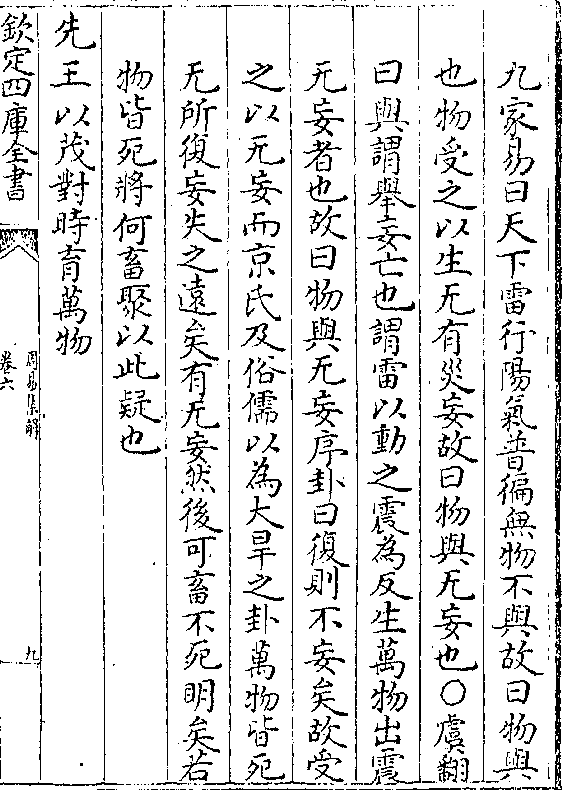 九家易曰天下雷行陽氣普徧無物不與故曰物與
也物受之以生无有災妄故曰物與无妄也○虞翻
曰與謂舉妄亡也謂雷以動之震為反生萬物出震
无妄者也故曰物與无妄序卦曰復則不妄矣故受
之以无妄而京氏及俗儒以為大旱之卦萬物皆死
无所復妄失之遠矣有无妄然後可畜不死明矣若
物皆死將何畜聚以此疑也
先王以茂對時育萬物
欽定四庫全書
周易集解
卷六
九